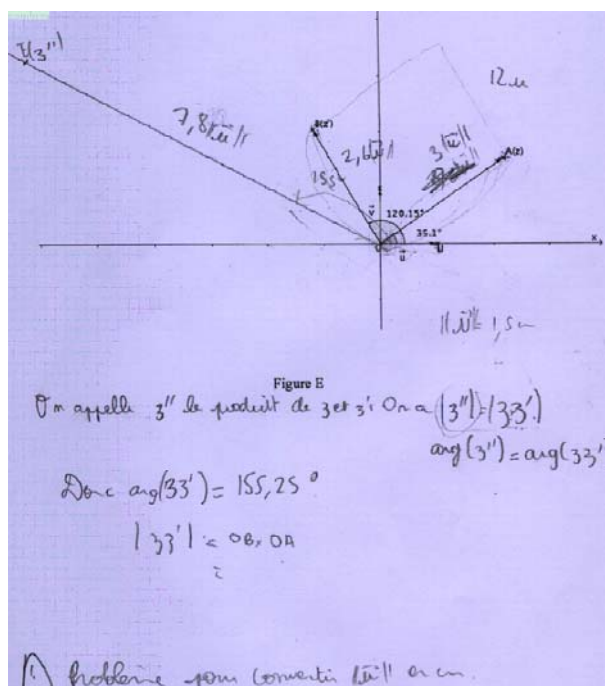 E(z'')
12 u
7,8 ||u||
B(z')
2,6 ||u||
3 ||u||
A(z)
155
v
120.15°
35.1°
u
x
||u||= 1,5cm
Figure E
On appelle z'' le produit de z et z'. On a |z''|=|zz'|
arg(z'') = arg(zz'
Donc arg(zz') = 155,25°
|zz'| = OB×OA
=
1) Problème pour convertir ||u|| en cm.